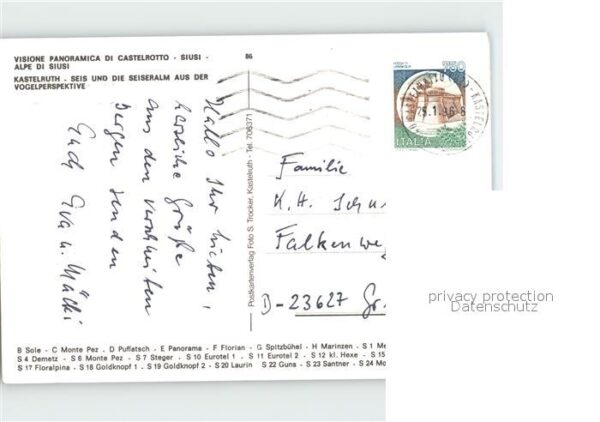 VISIONE PANORAMICA DI CASTELROTTO - SIUSI -
ALPE DI SIUSI
KASTELRUTH - SEIS UND DIE SEISERALM AUS DER
VOGELPERSPEKTIVE
86
Hallo Ihr Lieben,
herzliche Grüße
aus den verschneiten
Bergen senden
Euch Eva u.
Postkartenverlag Foto S. Trocker, Kastelruth - Tel. 706371
750
ITALIA
25.1.96
Familie
K.H.
Falkenweg
D-23627 Gr.
privacy protection
Datenschutz
B Sole - C Monte Pez - D Puflatsch - E Panorama - F Florian - G Spitzbühel - H Marinzen - S 1 Me
S 4 Demetz - S 6 Monte Pez - S 7 Steger - S 10 Eurotel 1 - S 11 Eurotel 2 - S 12 kl. Hexe - S 15
S 17 Floralpina - S 18 Goldknopf 1 - S 19 Goldknopf 2 - S 20 Laurin S 22 Guns - S 23 Santner - S 24 Mo